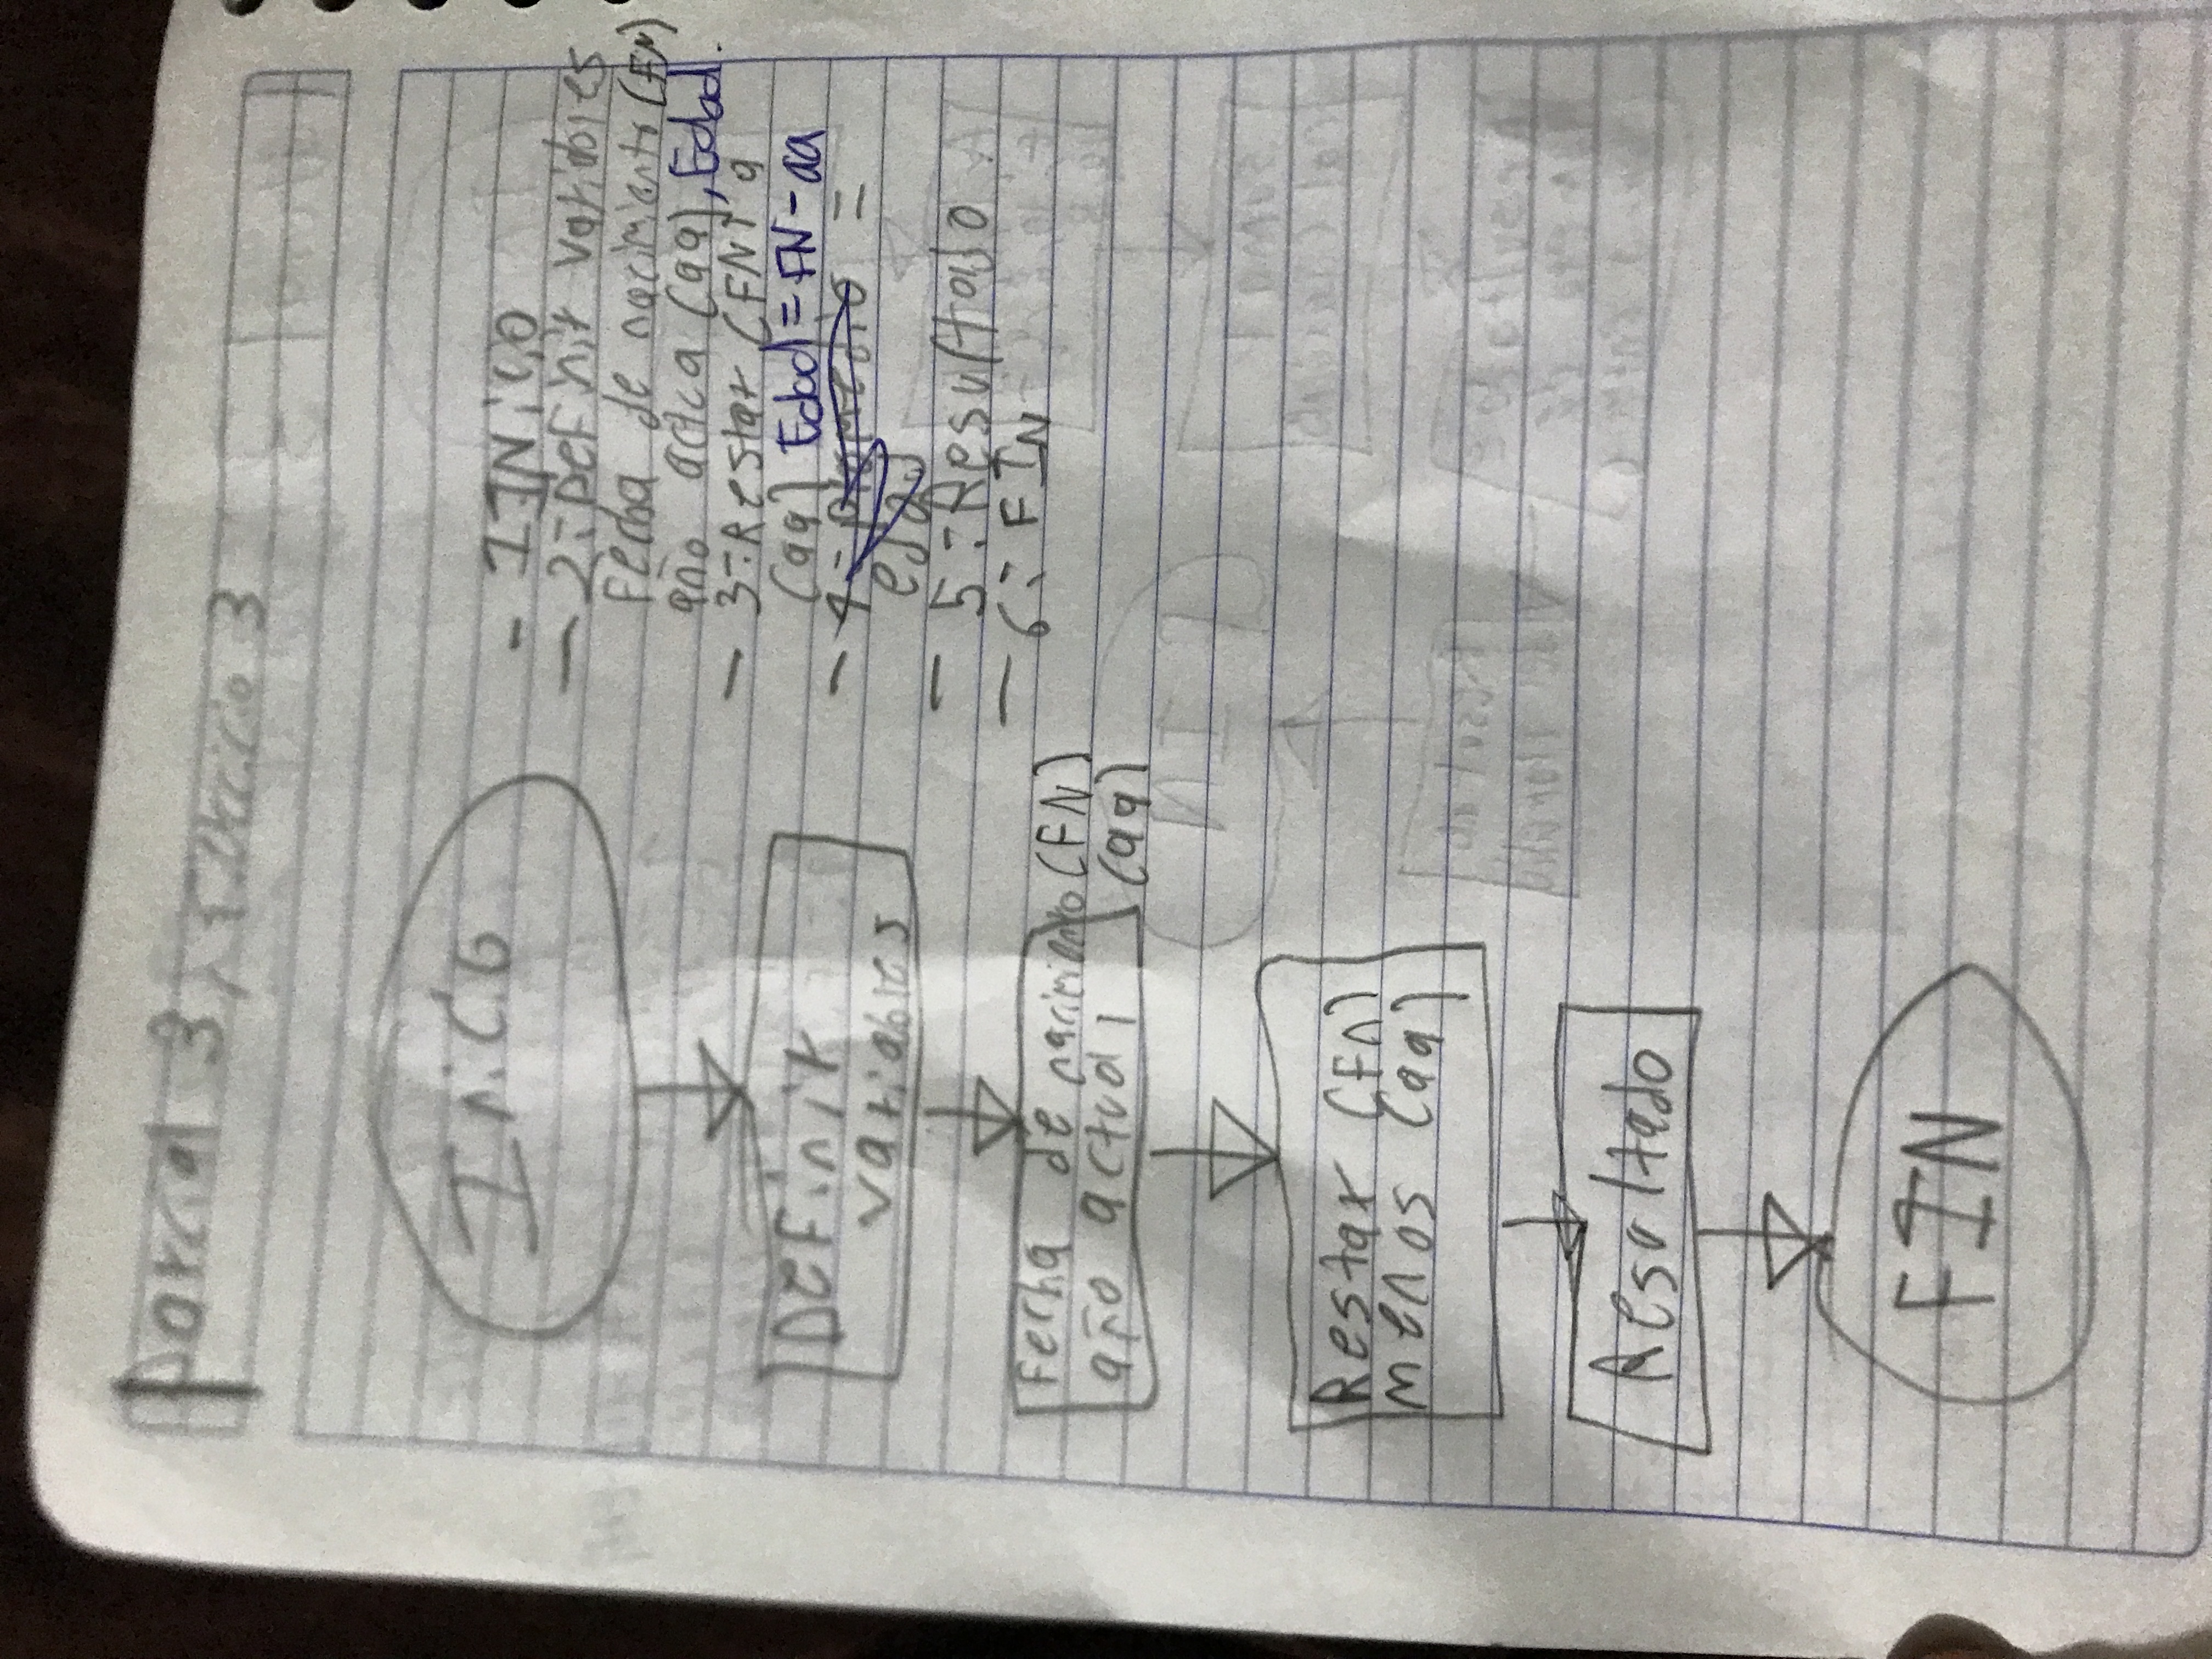 parcial 3,
Inico
Definir
variables
Fecha de nacimiento (FN)
año actual (aa)
Restar (FN)
menos (aa)
Resultado
FIN
- 1 INicio
- 2-: Definir variables
Fecha de nacimiento (FN)
año actca (aa), Edad.
- 3-: Restar (FN) a
(aa) Edad = FN - aa
- 4-:
edad
- 5-: Resultado
- 6-: FIN